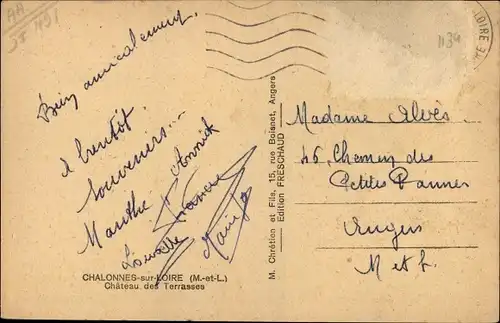 AA
1134
LOIRE
Bien amicalement
à bientôt.
Souvenirs...
Marthe Annick
Francine
CHALONNES-sur-LOIRE (M.-et-L.)
Château des Terrasses
M. Chrétien et Fils, 15, rue Boisnet, Angers
Edition FRESCHAUD
Madame Alvès
46, Chemin des
Petites Pannes
Angers
M et L.